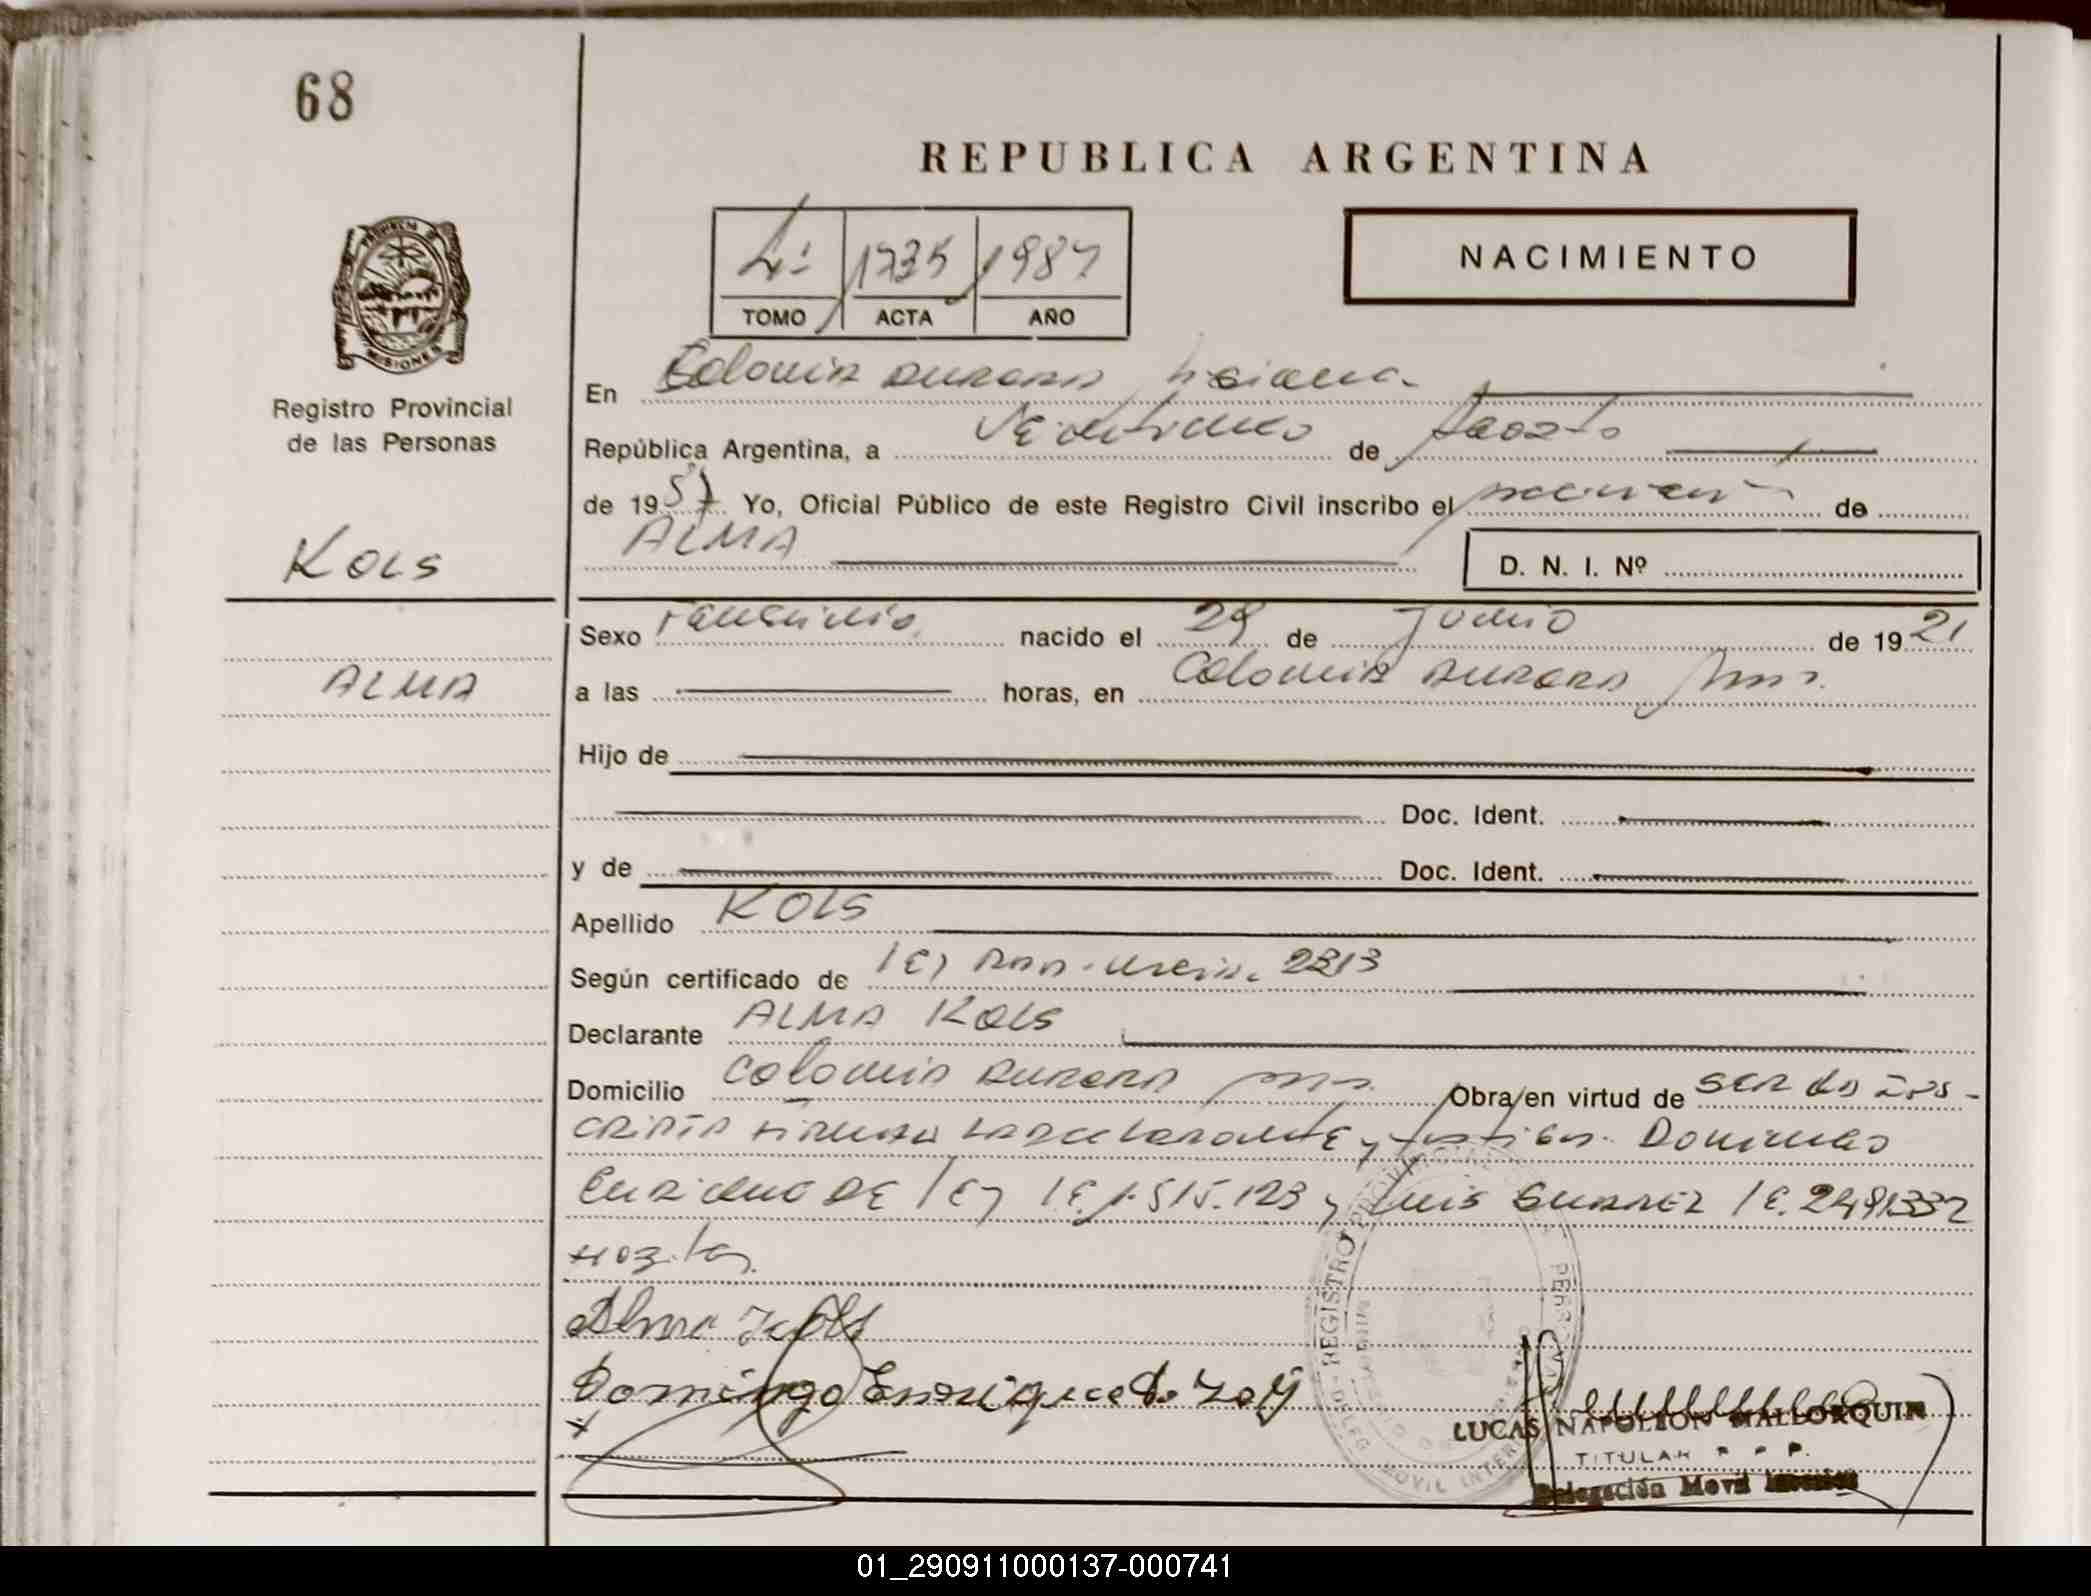 68
REPUBLICA ARGENTINA
4º 1735 1987
TOMO ACTA AÑO
NACIMIENTO
PROVINCIA DE
MISIONES
Registro Provincial
de las Personas
En Colonia Aurora Misiones
República Argentina, a Veinticinco de Agosto
de 1987 Yo, Oficial Público de este Registro Civil inscribo el nacimiento de
ALMA
D. N. I. Nº
KOLS
ALMA
Sexo Femenino nacido el 29 de Junio de 1921
a las horas, en Colonia Aurora Mns.
Hijo de
Doc. Ident.
y de Doc. Ident.
Apellido KOLS
Según certificado de Ley 2313
Declarante ALMA KOLS
Domicilio Colonia Aurora Mns. Obra en virtud de ser la ins-
cripta firman la declarante y testigos. Domingo
Enrique DE Ley I E. 1.515.123 y Luis SUAREZ I E. 2491332
Alma Kols
Domingo Enrique de Loy
REGISTRO PROVINCIAL
LUCAS NAPOLEON MALLORQUIN
TITULAR R P P.
Delegación Movil Interior
01_290911000137-000741